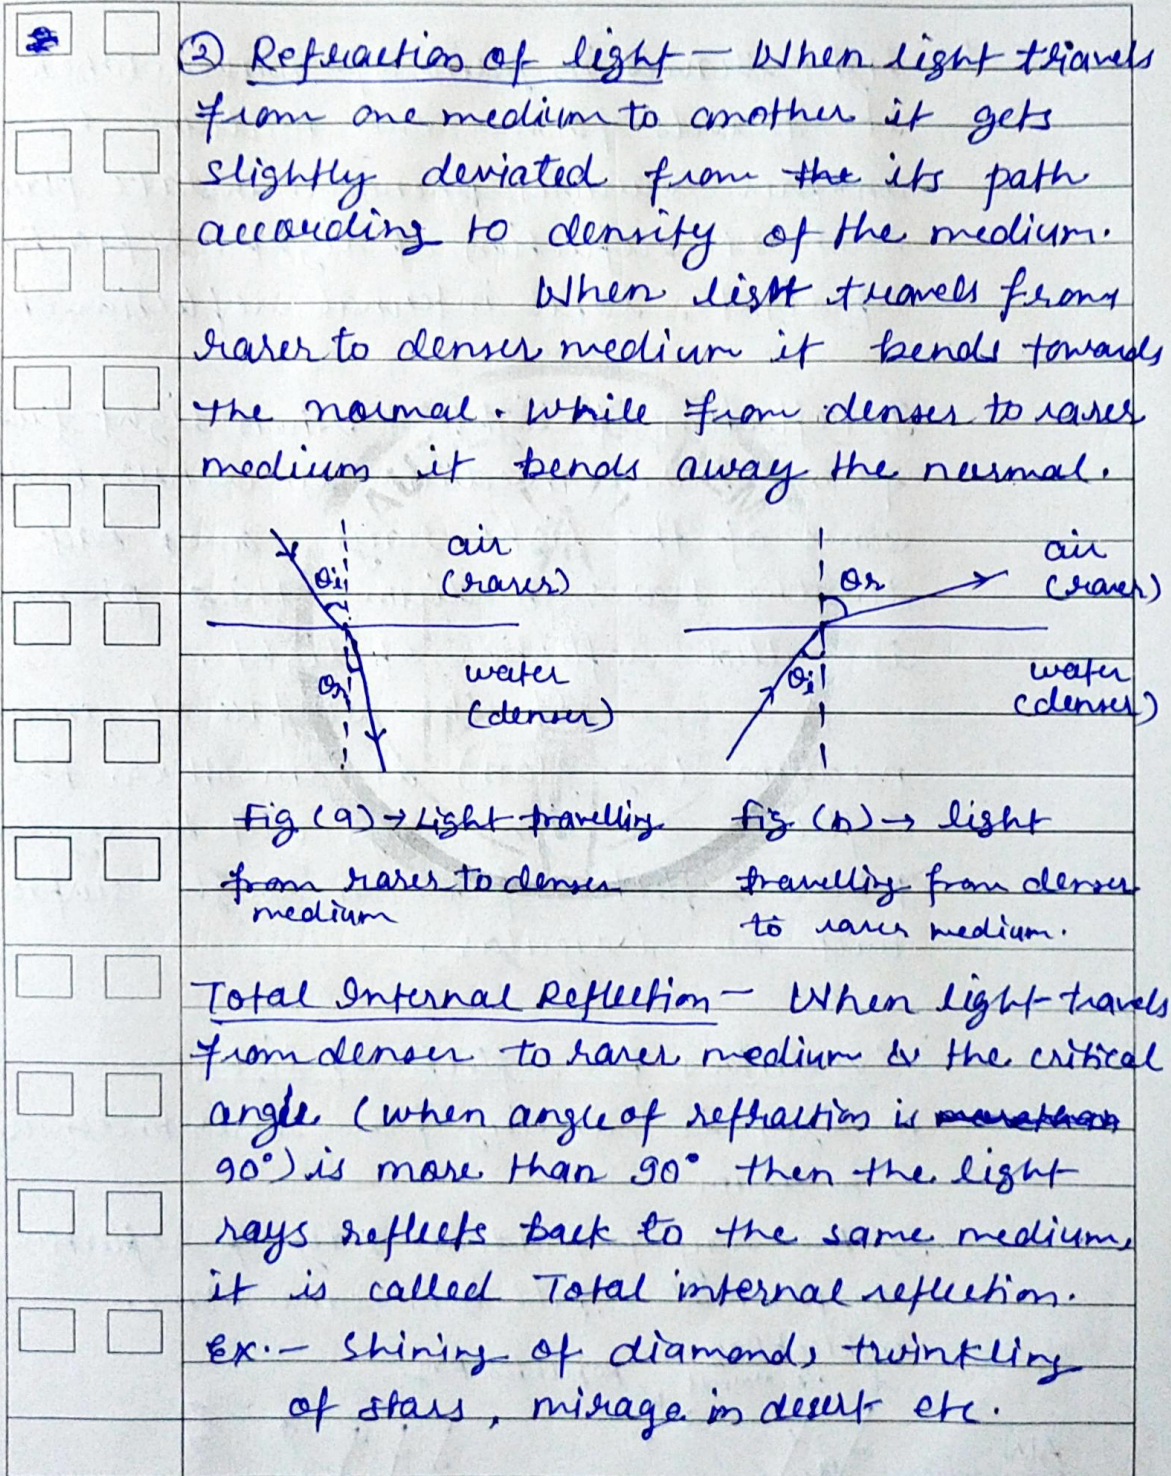 ② Refraction of light – When light travels
from one medium to another it gets
slightly deviated from the its path
according to density of the medium.
When light travels from
rarer to denser medium it bends towards
the normal. While from denser to rarer
medium it bends away the normal.
air
(rarer)
θi
water
(denser)
θr
air
(rarer)
θr
water
(denser)
θi
Fig (a) → Light travelling
from rarer to denser
medium
Fig. (b) → light
travelling from denser
to rarer medium.
Total Internal Reflection – When light travels
from denser to rarer medium & the critical
angle (when angle of refraction is more than
90°) is more than 90° then the light
rays reflects back to the same medium,
it is called Total internal reflection.
Ex.– Shining of diamond, twinkling
of stars, mirage in desert etc.